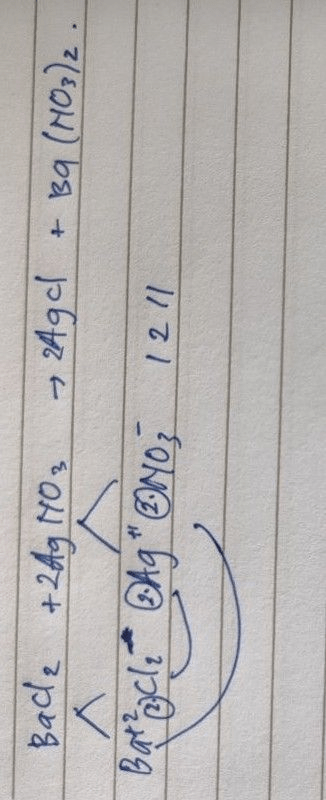 BaCl2 + 2AgNO3 → 2AgCl + Ba(NO3)2.
Ba+2 (2)Cl2- (2.)Ag+1 (2.)NO3- 1 2 1 1